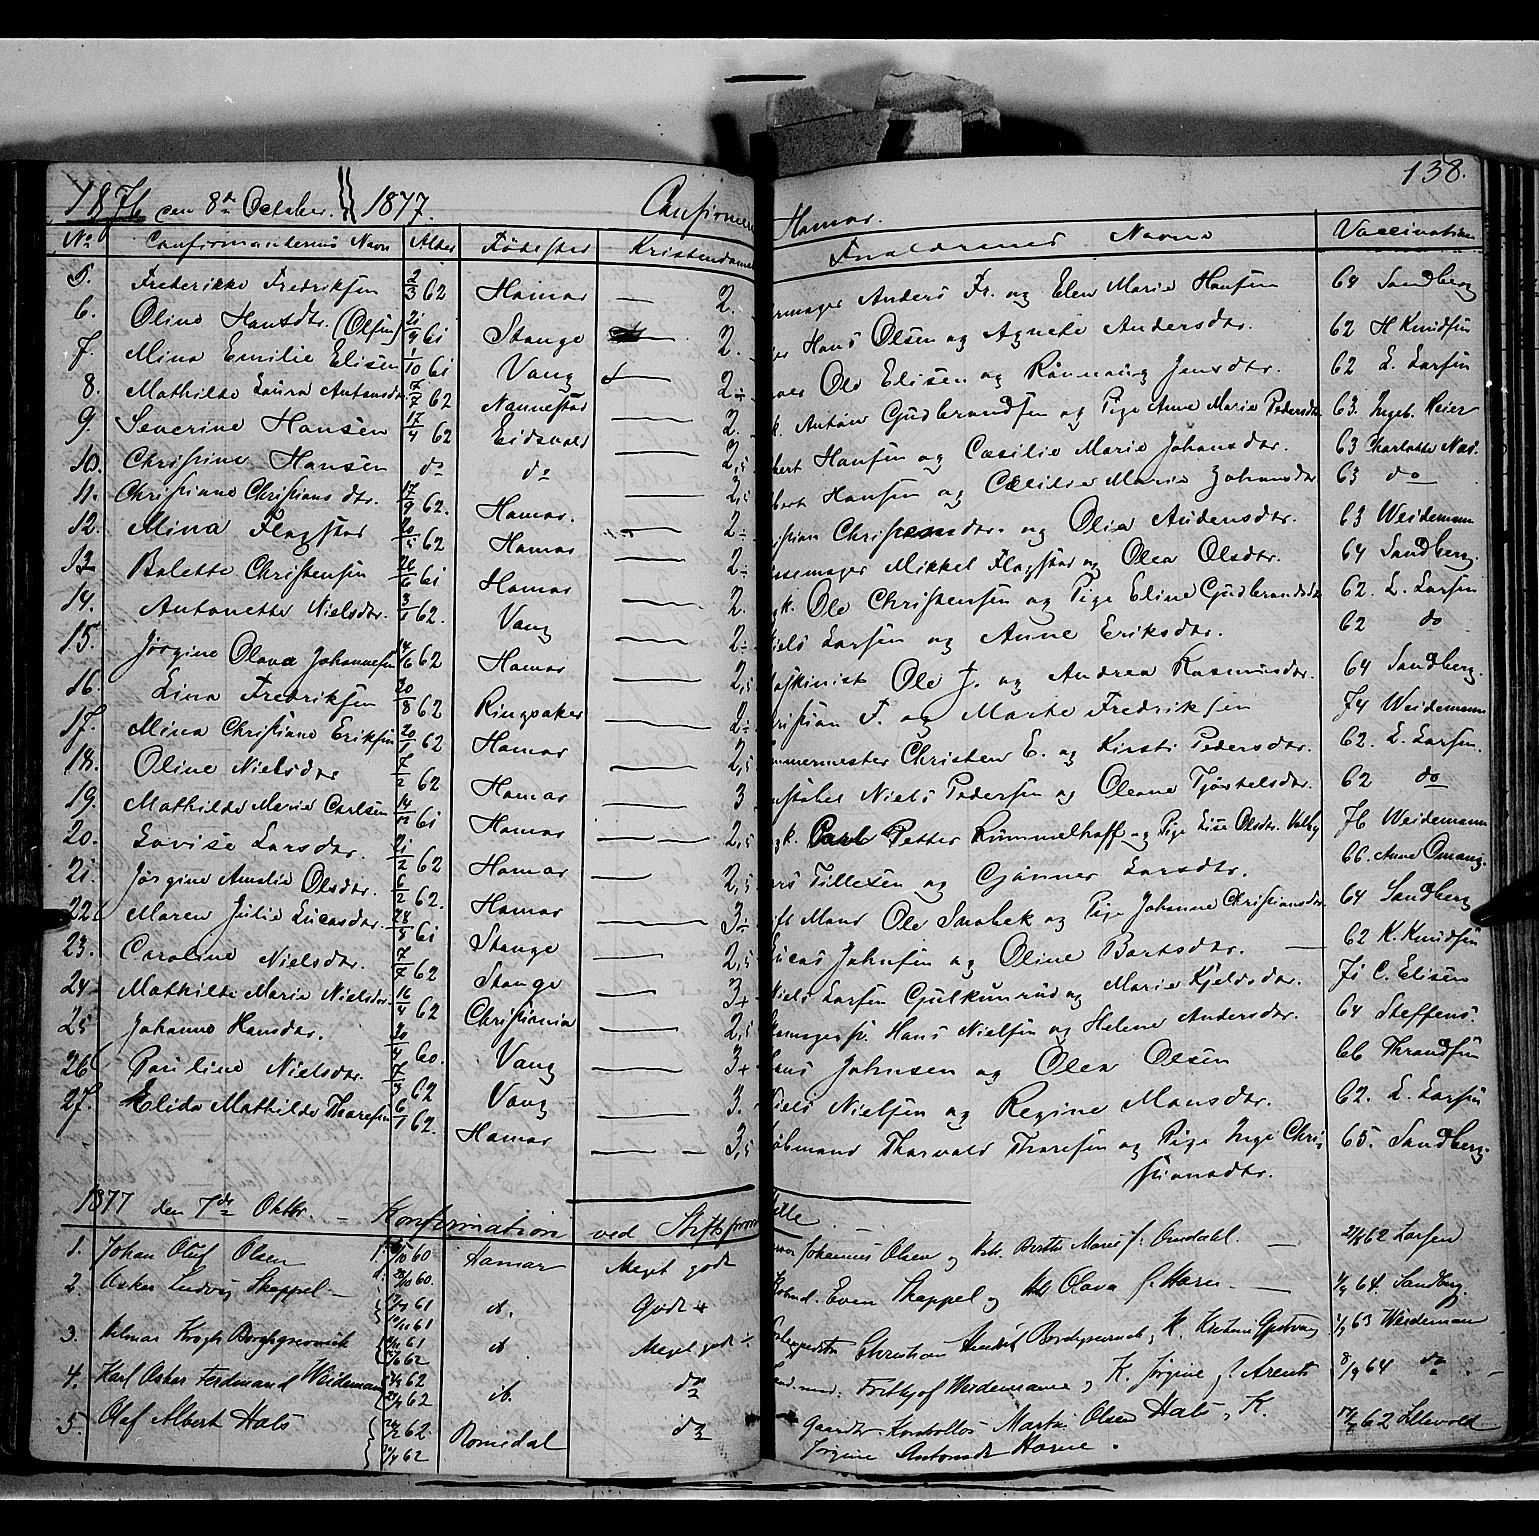 138.
1876 den 8de October. 1877. Confirmere Hamar.
No Confirmandernes Navn Alder Fødested Kristendoms Forældrenes Navne Vaccination
5. Frederikke Fredriksen 2/3 62 Hamar — 2. Anders Fr. og Elen Marie Hansen 64 Sandberg
6. Oline Hansdtr. (Olsen) 21/9 61 Stange — 2. Hans Olsen og Agnete Andersdtr. 62 H Knudsen
7. Mina Emilie Elisen 1/10 61 Vang — 2÷ Ole Elisen og Rønnaug Jensdtr. 62 L. Larsen
8. Mathilde Laura Antonsdtr 7/7 62 Nannestad — 2. Anton Gudbrandsen og Pige Anne Marie Pedersdtr 63. Ingeb. Meier
9. Severine Hansen 17/4 62 Eidsvold — 2,5 Hansen og Cæsilie Marie Johansdtr. 63 Charlotte Næs.
10. Christine Hansen do do — 2,5 Hansen og Cæcilie Marie Johansdtr 63 do
11. Christiane Christiansdtr. 17/9 62. Hamar. — 2÷ og Olia Andersdtr. 63 Weidemann
12. Mina Flagstad 62 Hamar — 2÷ Mikkel Flagstad og Olea Olsdtr. 64 Sandberg.
13 Bolette Christensen 61 Hamar — 2. Ole Christensen og Pige Eline Gudbrandsdtr 62. L. Larsen
14. Antonette Nielsdtr. 62. Vang — 2÷ Niels Larsen og Anne Eriksdtr. 62 do
15. Jørgine Olava Johannesen 14/6 62 Hamar — 2,5 Maskinist Ole J. og Andrea Rasmusdtr. 64 Sandberg.
16. Lina Fredriksen 20/8 62 Ringsaker — 2÷ F. og Marte Fredriksen 74 Weidemann
17. Mina Christiane Eriksen 20/1 62 Hamar — 2,5 Christen E. og Kirsti Pedersdtr. 62. L. Larsen.
18. Oline Nielsdtr 62 Hamar — 3 Niels Pedersen og Oleane Tjøstelsdtr. 62 do
19. Mathilde Marie Carlsen 14/12 61 Hamar — 2,5 Carl Petter Rummelhoff og Pige Lise Olsdtr. Valby 76 Weidemann
20. Lovise Larsdtr. 21/2 62 Hamar — 2,5 Tillesen og Gjønner Larsdtr. 66. Anne Omang.
21. Jørgine Amalie Olsdtr. 6/2 62. Hamar — 3÷ Gift Mand Ole Snabek og Pige Johanne Christiansdtr 64 Sandberg
22 Maren Julie Lucasdtr. 28/8 61 Stange — 2,5 Lucas Johnsen og Oline Bartsdtr. — 62 K. Knudsen
23. Caroline Nielsdtr. 7/7 62 Stange — 3+ Niels Larsen Gulkunrud og Marie Kjeldsdtr. 71 C. Elisen
24 Mathilde Marie Nielsdtr. 16/4 62 Christiania — 2,5 Hans Nielsen og Helene Andersdtr. 64 Steffens.
25 Johanne Hansdtr. 20/4 60. Vang — 3+ Hans Johnsen og Olea Olsen 66 Thrandsen
26 Pauline Nielsdtr. 62 Vang — 3. Niels Nielsen og Regine Monsdtr. 62. L. Larsen
27. Elida Mathilde Thoresen 6/1 62. Hamar — 3,5 Kjøbmand Thorvald Thoresen og Pige Inge Chri-
stiansdtr. 65. Sandberg.
1877 den 7de Oktbr. — Konfirmation ved Stiftsprovst
1. Johan Oluf Olsen 60 Hamar Meget godt Johannes Olsen og Berthe Marie f. Omdahl. — 62 Larsen
2. Oskar Ludvig Skappel — 61 do. Godt + Even Skappel og Olava f. Horne — 64. Sandberg.
3. Hilmar Krogh Borchgrevinck 61 62 do Meget godt ÷ Christian Henrik Borchgrevinck, K. Gystrav 63 Weideman
4. Karl Oskar Ferdinand Weidemann 62 62 do. do Frithjof Weidemann og K. Jørgine f. Arents 8/9 64 do
5. Olaf Albert Hals 62 62 Romedal do Gaardbr. Martin Olsen Hals, K.
Jørgine Antonsdtr Horne. 62 Lillevold